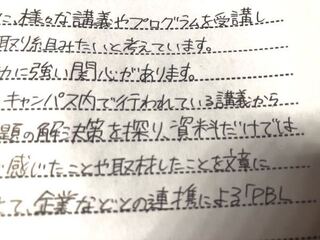 に、様々な講義やプログラムを受講し
取り組みたいと考えています。
力に強い関心があります。
キャンパス内で行われている講義から
題の解決策を探り、資料だけでは
感じたことや取材したことを文章に
て、企業などとの連携による「PBL